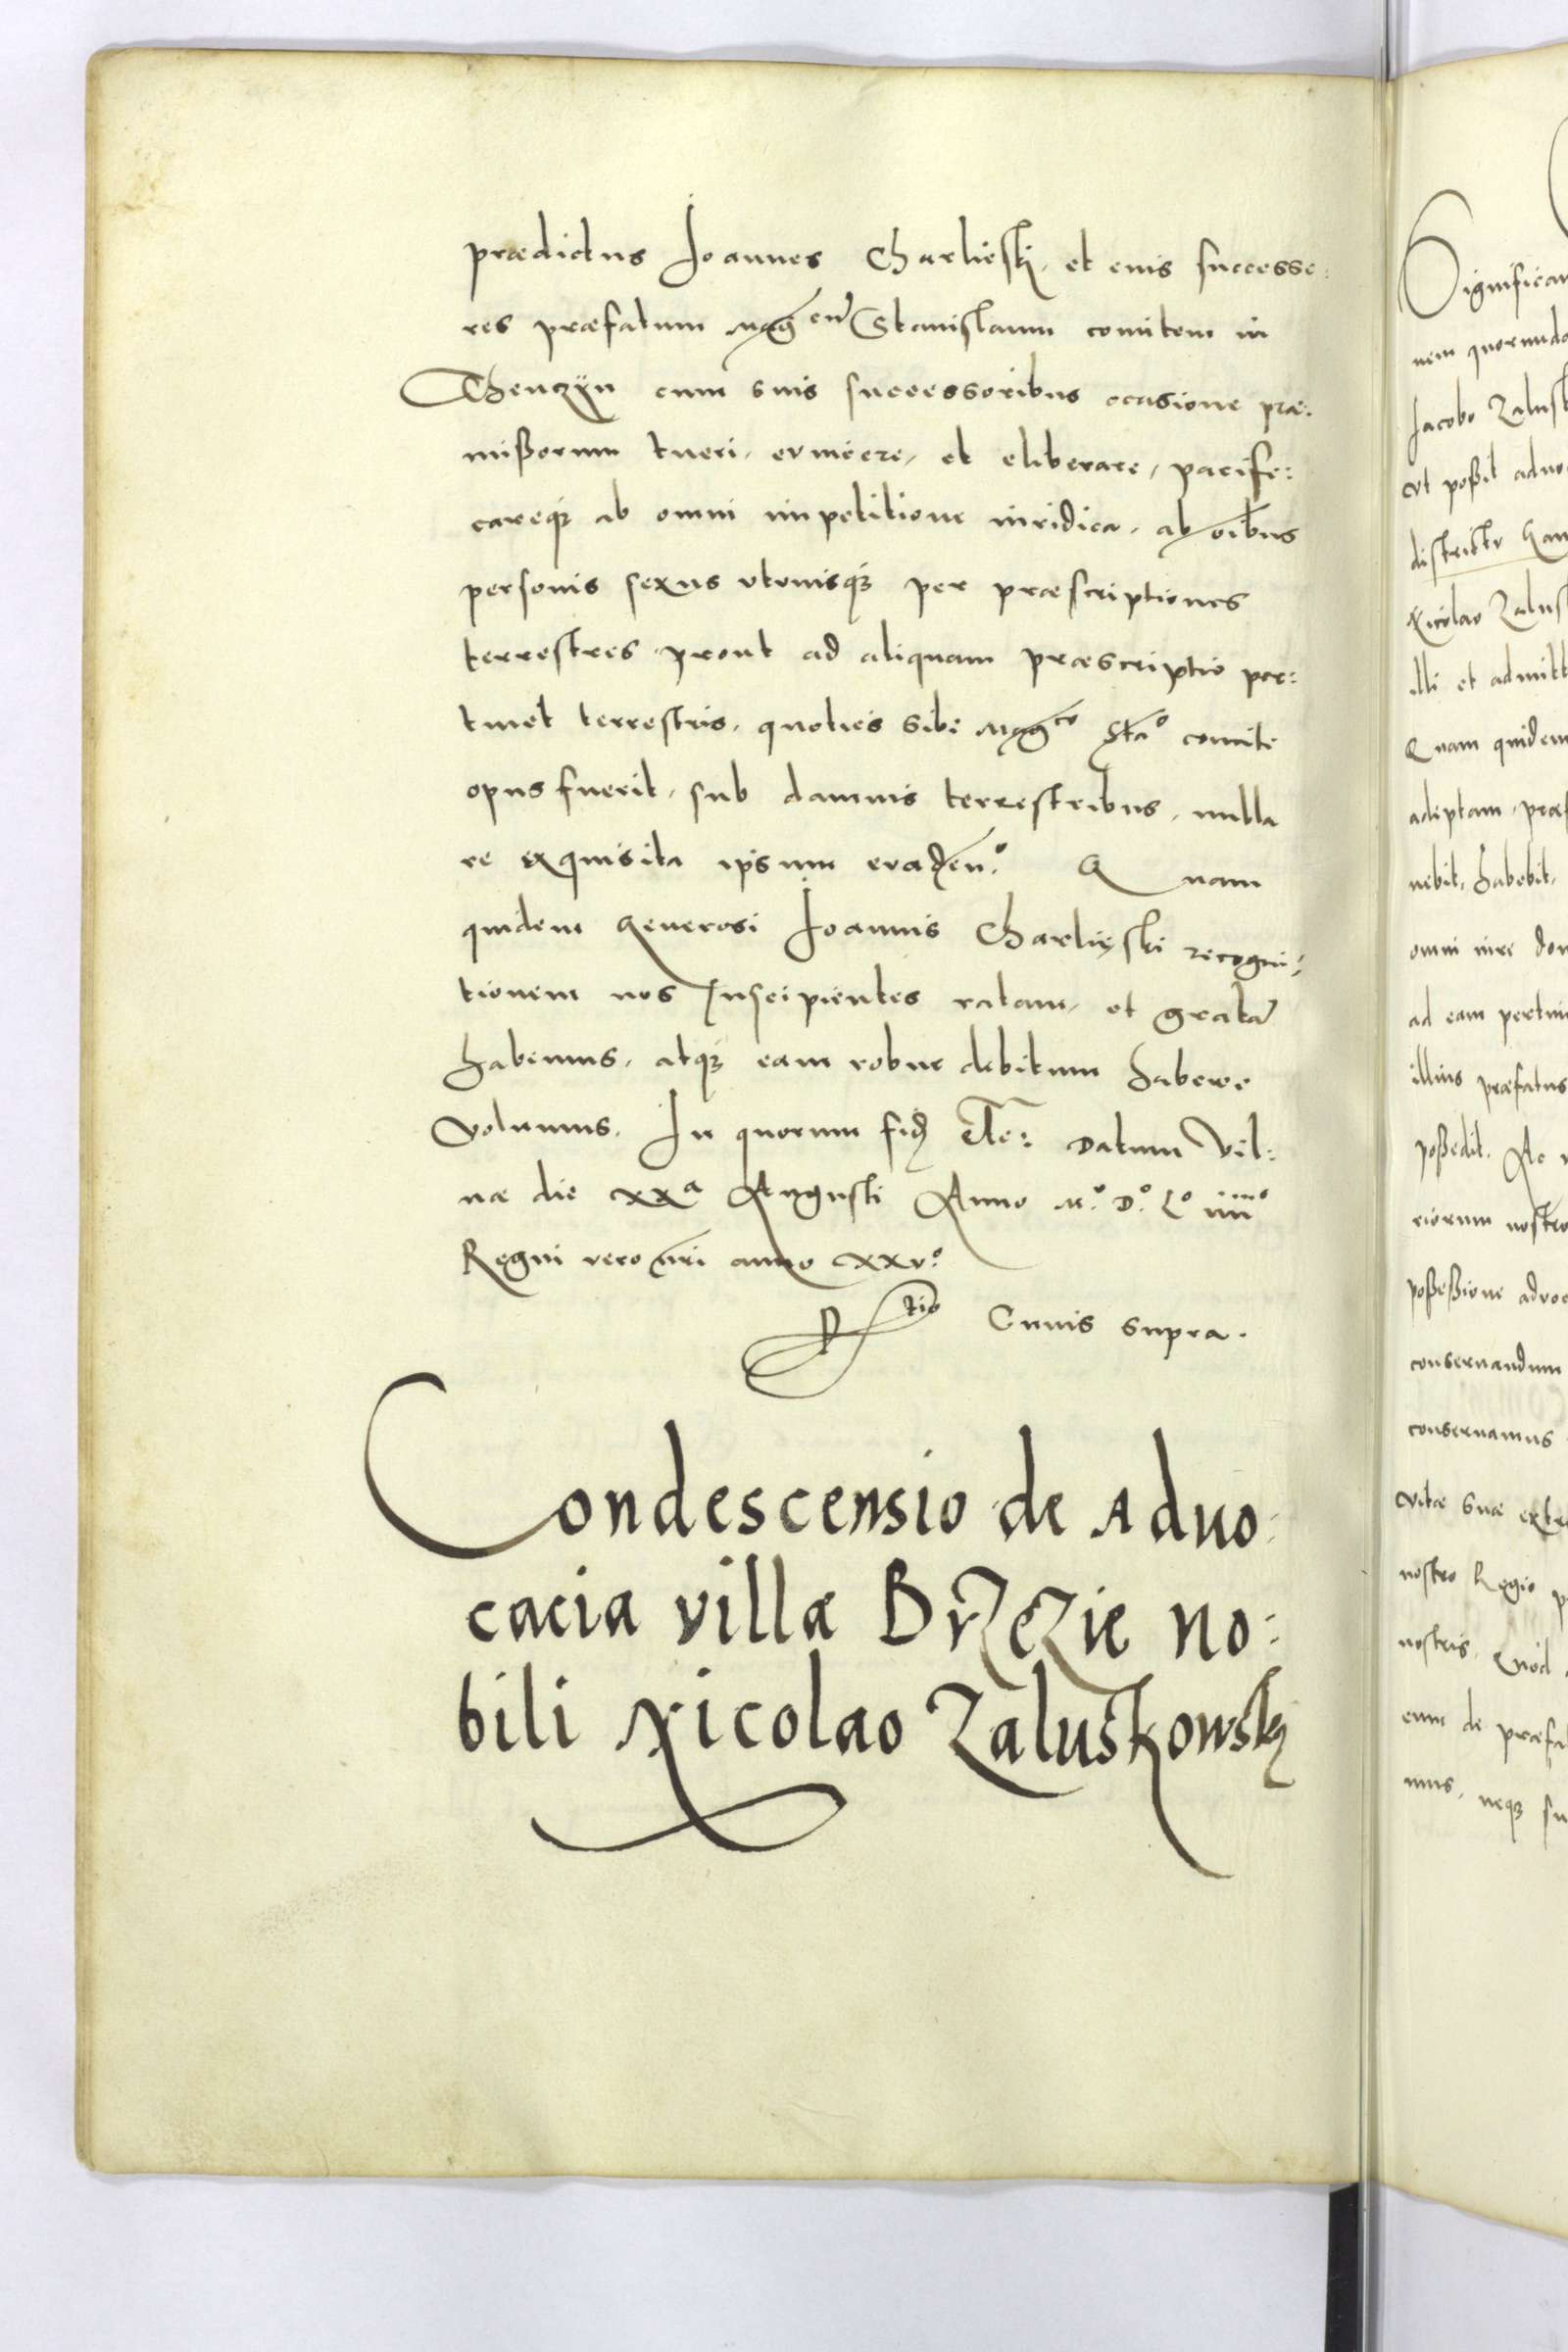 prædictus Joannes Charlieski, et euis successo:
res præfatum Mag[cum] Stanislaum comitem in
Thenczyn cum suis successoribus ocasione præ:
mißorum tueri, evincere, et eliberare, pacifi:
careq[ue] ab omni impetitione iuridica, ab oībus
personis sexus utriusq[ue] per præscriptiones
terrestres prout ad aliquam præscriptio per:
tinet terrestris, quoties sibi Mag^co Sta^o comiti
opus fuerit, sub damnis terrestribus, nulla
re exquisita ipsum evaden^o. Quam
quidem Generosi Joannis Charlięski recogni:
tionem nos suscipientes ratam, et gratã
habemus, atq[ue] eam robur debitum habere
volumus. In quorum fidē etc: Datum Vil:
næ die XX^a Augusti Anno M^o. D^o. L^o iiii^o
Regni vero nr̄i anno XXV^o.
R[ela]tio Cuius supra.
Condescensio de Aduo:
cacia villæ Brzezie no:
bili Nicolao Zaluskowsky
Significam
nem quorunda
Jacobo Zalusk
ut poßit aduo
districtu San
Nicolao Zalus
illi et admitt
Quam quidem
adeptam, præf
nebit, habebit,
omni iure dom
ad eam pertin
illius præfatus
poßedit. Ac
riorum nostro
poßeßione advoc
conseruandum
conseruamus
vitæ suæ extre
nostro Regio p
nostris. Quod
eum de præfa
mus, neq[ue] su